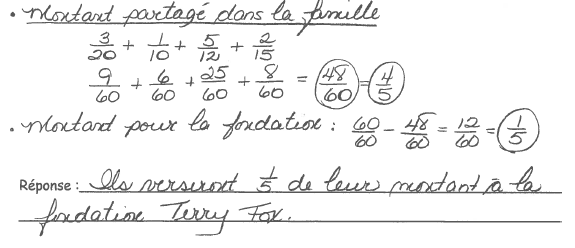 • Montant partagé dans la famille
3/20 + 1/10 + 5/12 + 2/15
9/60 + 6/60 + 25/60 + 8/60 = 48/60 = 4/5
• Montant pour la fondation : 60/60 - 48/60 = 12/60 = 1/5
Réponse : Ils verseront 1/5 de leur montant à la
fondation Terry Fox.